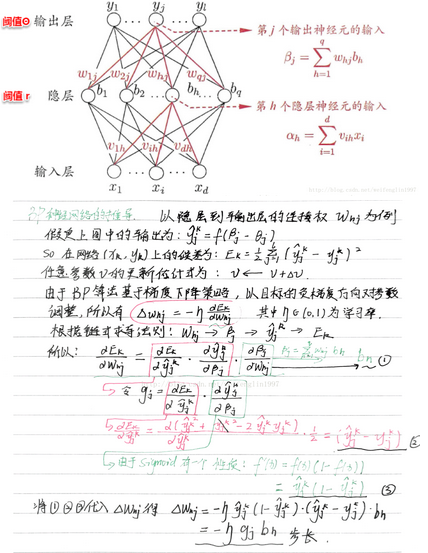 阈值Θ 输出层 y₁ yⱼ yₗ
第 j 个输出神经元的输入
βⱼ = Σ_{h=1}^{q} w_{hj} b_h
w_{1j} w_{2j} w_{hj} w_{qj}
阈值 r 隐层 b₁ b₂ b_h b_q
第 h 个隐层神经元的输入
α_h = Σ_{i=1}^{d} v_{ih} x_i
v_{1h} v_{ih} v_{dh}
输入层 x₁ x_i x_d
以隐层到输出层的连接权 W_{hj} 为例
假定上图中的输出为: ŷⱼᵏ = f(βⱼ - θⱼ)
So 在网络(x_k, y_k)上的误差为: E_k = ½ Σ (ŷⱼᵏ - yⱼᵏ)²
任意参数 v 的更新估计式为: v ← v + Δv.
由于BP算法基于梯度下降策略, 以目标的负梯度方向对参数
调整, 所以有 ΔW_{hj} = -η ∂E_k/∂W_{hj} 其中 η∈(0,1) 为学习率.
根据链式求导法则: W_{hj} → βⱼ → ŷⱼᵏ → E_k
所以: ∂E_k/∂W_{hj} = ∂E_k/∂ŷⱼᵏ · ∂ŷⱼᵏ/∂βⱼ · ∂βⱼ/∂W_{hj} b_h ①
令 gⱼ = ∂E_k/∂ŷⱼᵏ · ∂ŷⱼᵏ/∂βⱼ
· ½ = (ŷⱼᵏ - yⱼᵏ) ②
由于Sigmoid有一个性质: f'(x) = f(x)(1 - f(x))
= ŷⱼᵏ(1 - ŷⱼᵏ) ③
将①②③代入 ΔW_{hj} 得 ΔW_{hj} = -η ŷⱼᵏ(1 - ŷⱼᵏ)·(ŷⱼᵏ - yⱼᵏ)·b_h
= -η gⱼ b_h 步长.